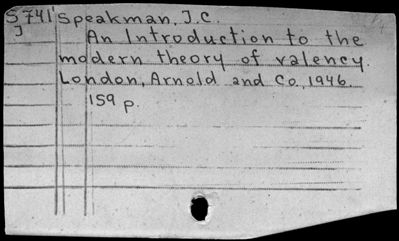 S741 Speakman, J.C.
J An Introduction to the
modern theory of valency.
London, Arnold and Co., 1946.
159 p.